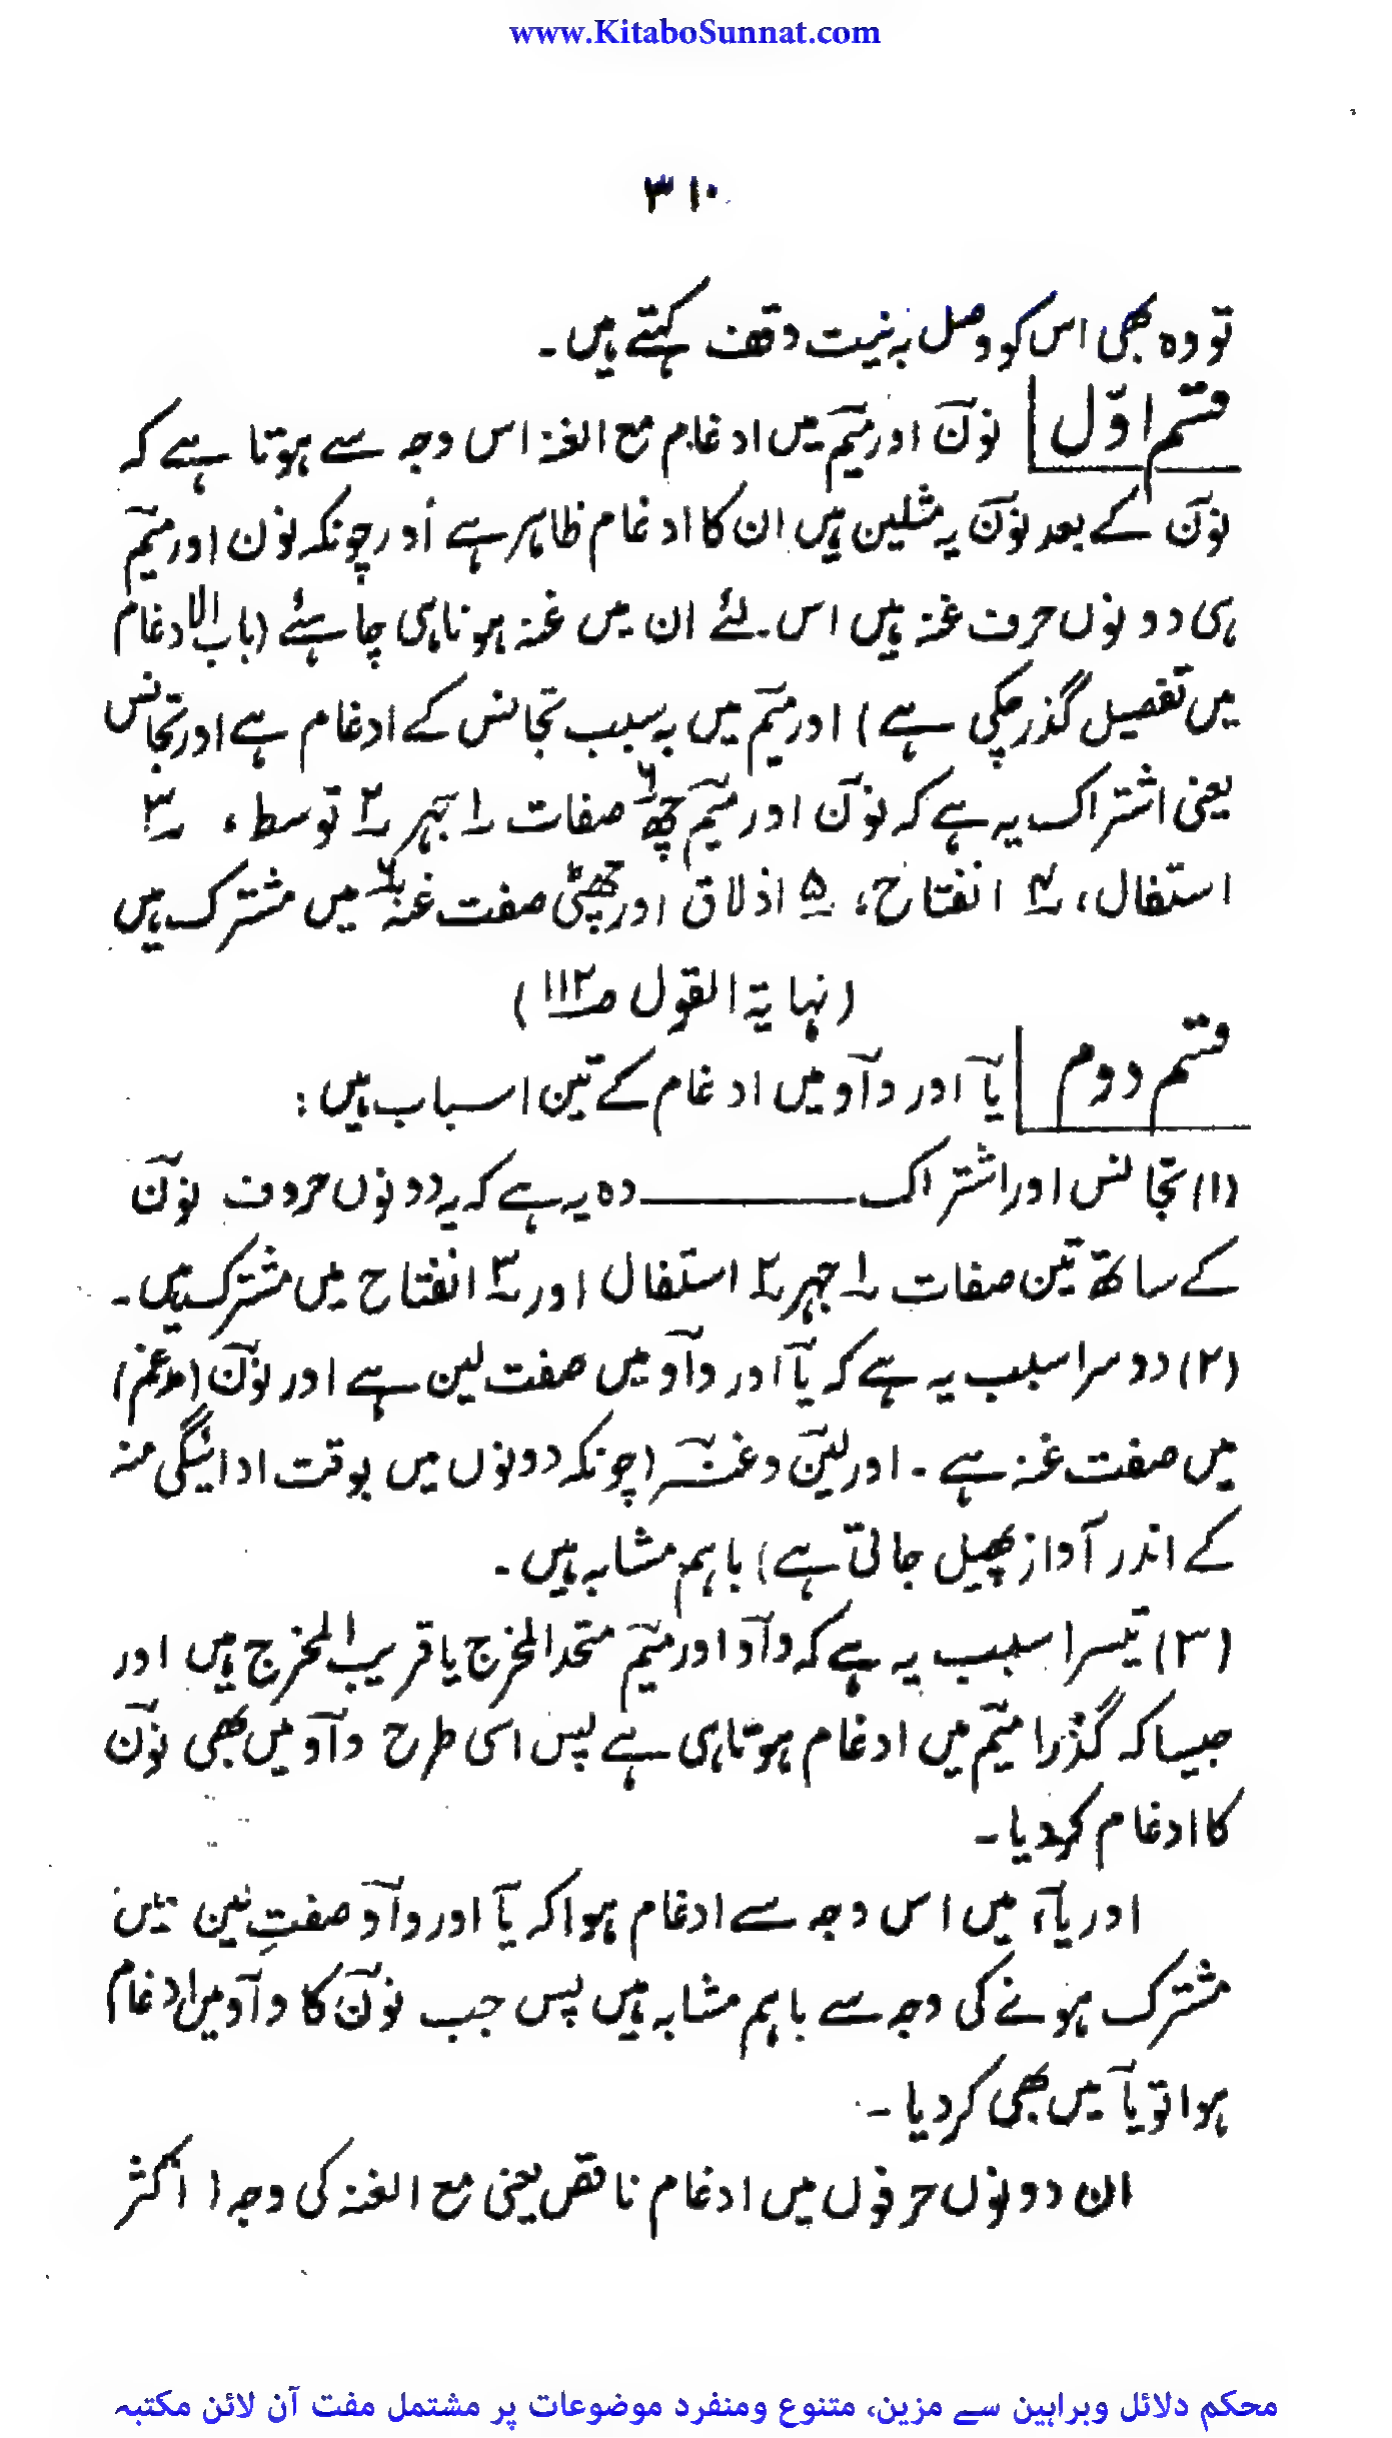 www.KitaboSunnat.com
۳۱۰
تو وہ بھی اس کو وصل بہ نیت وقف کہتے ہیں۔
قسم اوّل نوٓن اور میٓم میں ادغام مع الغنہ اس وجہ سے ہوتا ہے کہ
نوٓن کے بعد نوٓن یہ مثلین ہیں ان کا ادغام ظاہر ہے اور چونکہ نون اور میٓم
ہی دونوں حرف غنہ ہیں اس لئے ان میں غنہ ہونا ہی چاہئے (باب الادغام
میں تفصیل گذر چکی ہے) اور میٓم میں بہ سبب تجانس کے ادغام ہے اور تجانس
یعنی اشتراک یہ ہے کہ نوٓن اور میٓم چھ۶ صفات ۱ جہر ۲ توسط، ۳
استفال، ۴ انفتاح، ۵ اذلاق اور چھٹی صفت غنہ ۶ میں مشترک ہیں
(نہایۃ القول صـ۱۱۲)
قسم دوم یآ اور وآو میں ادغام کے تین اسباب ہیں :
(۱) تجانس اور اشتراک ــــــــ وہ یہ ہے کہ یہ دونوں حروف نوٓن
کے ساتھ تین صفات ۱ جہر ۲ استفال اور ۳ انفتاح میں مشترک ہیں۔
(۲) دوسرا سبب یہ ہے کہ یآ اور وآو میں صفت لین ہے اور نوٓن (مدغم)
میں صفت غنہ ہے ۔ اور لیٓن وغنٓہ (چونکہ دونوں میں بوقت ادائیگی منہ
کے اندر آواز پھیل جاتی ہے) باہم مشابہ ہیں ۔
(۳) تیسرا سبب یہ ہے کہ وآو اور میٓم متحد المخرج یا قریب المخرج ہیں اور
جیسا کہ گذرا میٓم میں ادغام ہوتا ہی ہے پس اسی طرح وآو میں بھی نوٓن
کا ادغام کردیا ۔
اور یآء میں اس وجہ سے ادغام ہوا کہ یآ اور وآو صفتِ لین میں
مشترک ہونے کی وجہ سے باہم مشابہ ہیں پس جب نوٓن کا وآو میں ادغام
ہوا تو یآ میں بھی کردیا ۔
ان دونوں حرفوں میں ادغام ناقص یعنی مع الغنہ کی وجہ ( اکثر
محکم دلائل وبراہین سے مزین، متنوع ومنفرد موضوعات پر مشتمل مفت آن لائن مکتبہ